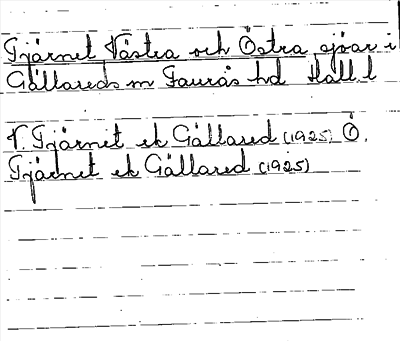 Tjärnet Västra och Östra sjöar i
Gällareds sn Faurås hd Hall l
V. Tjärnet ek Gällared (1925) Ö.
Tjärnet ek Gällared (1925)